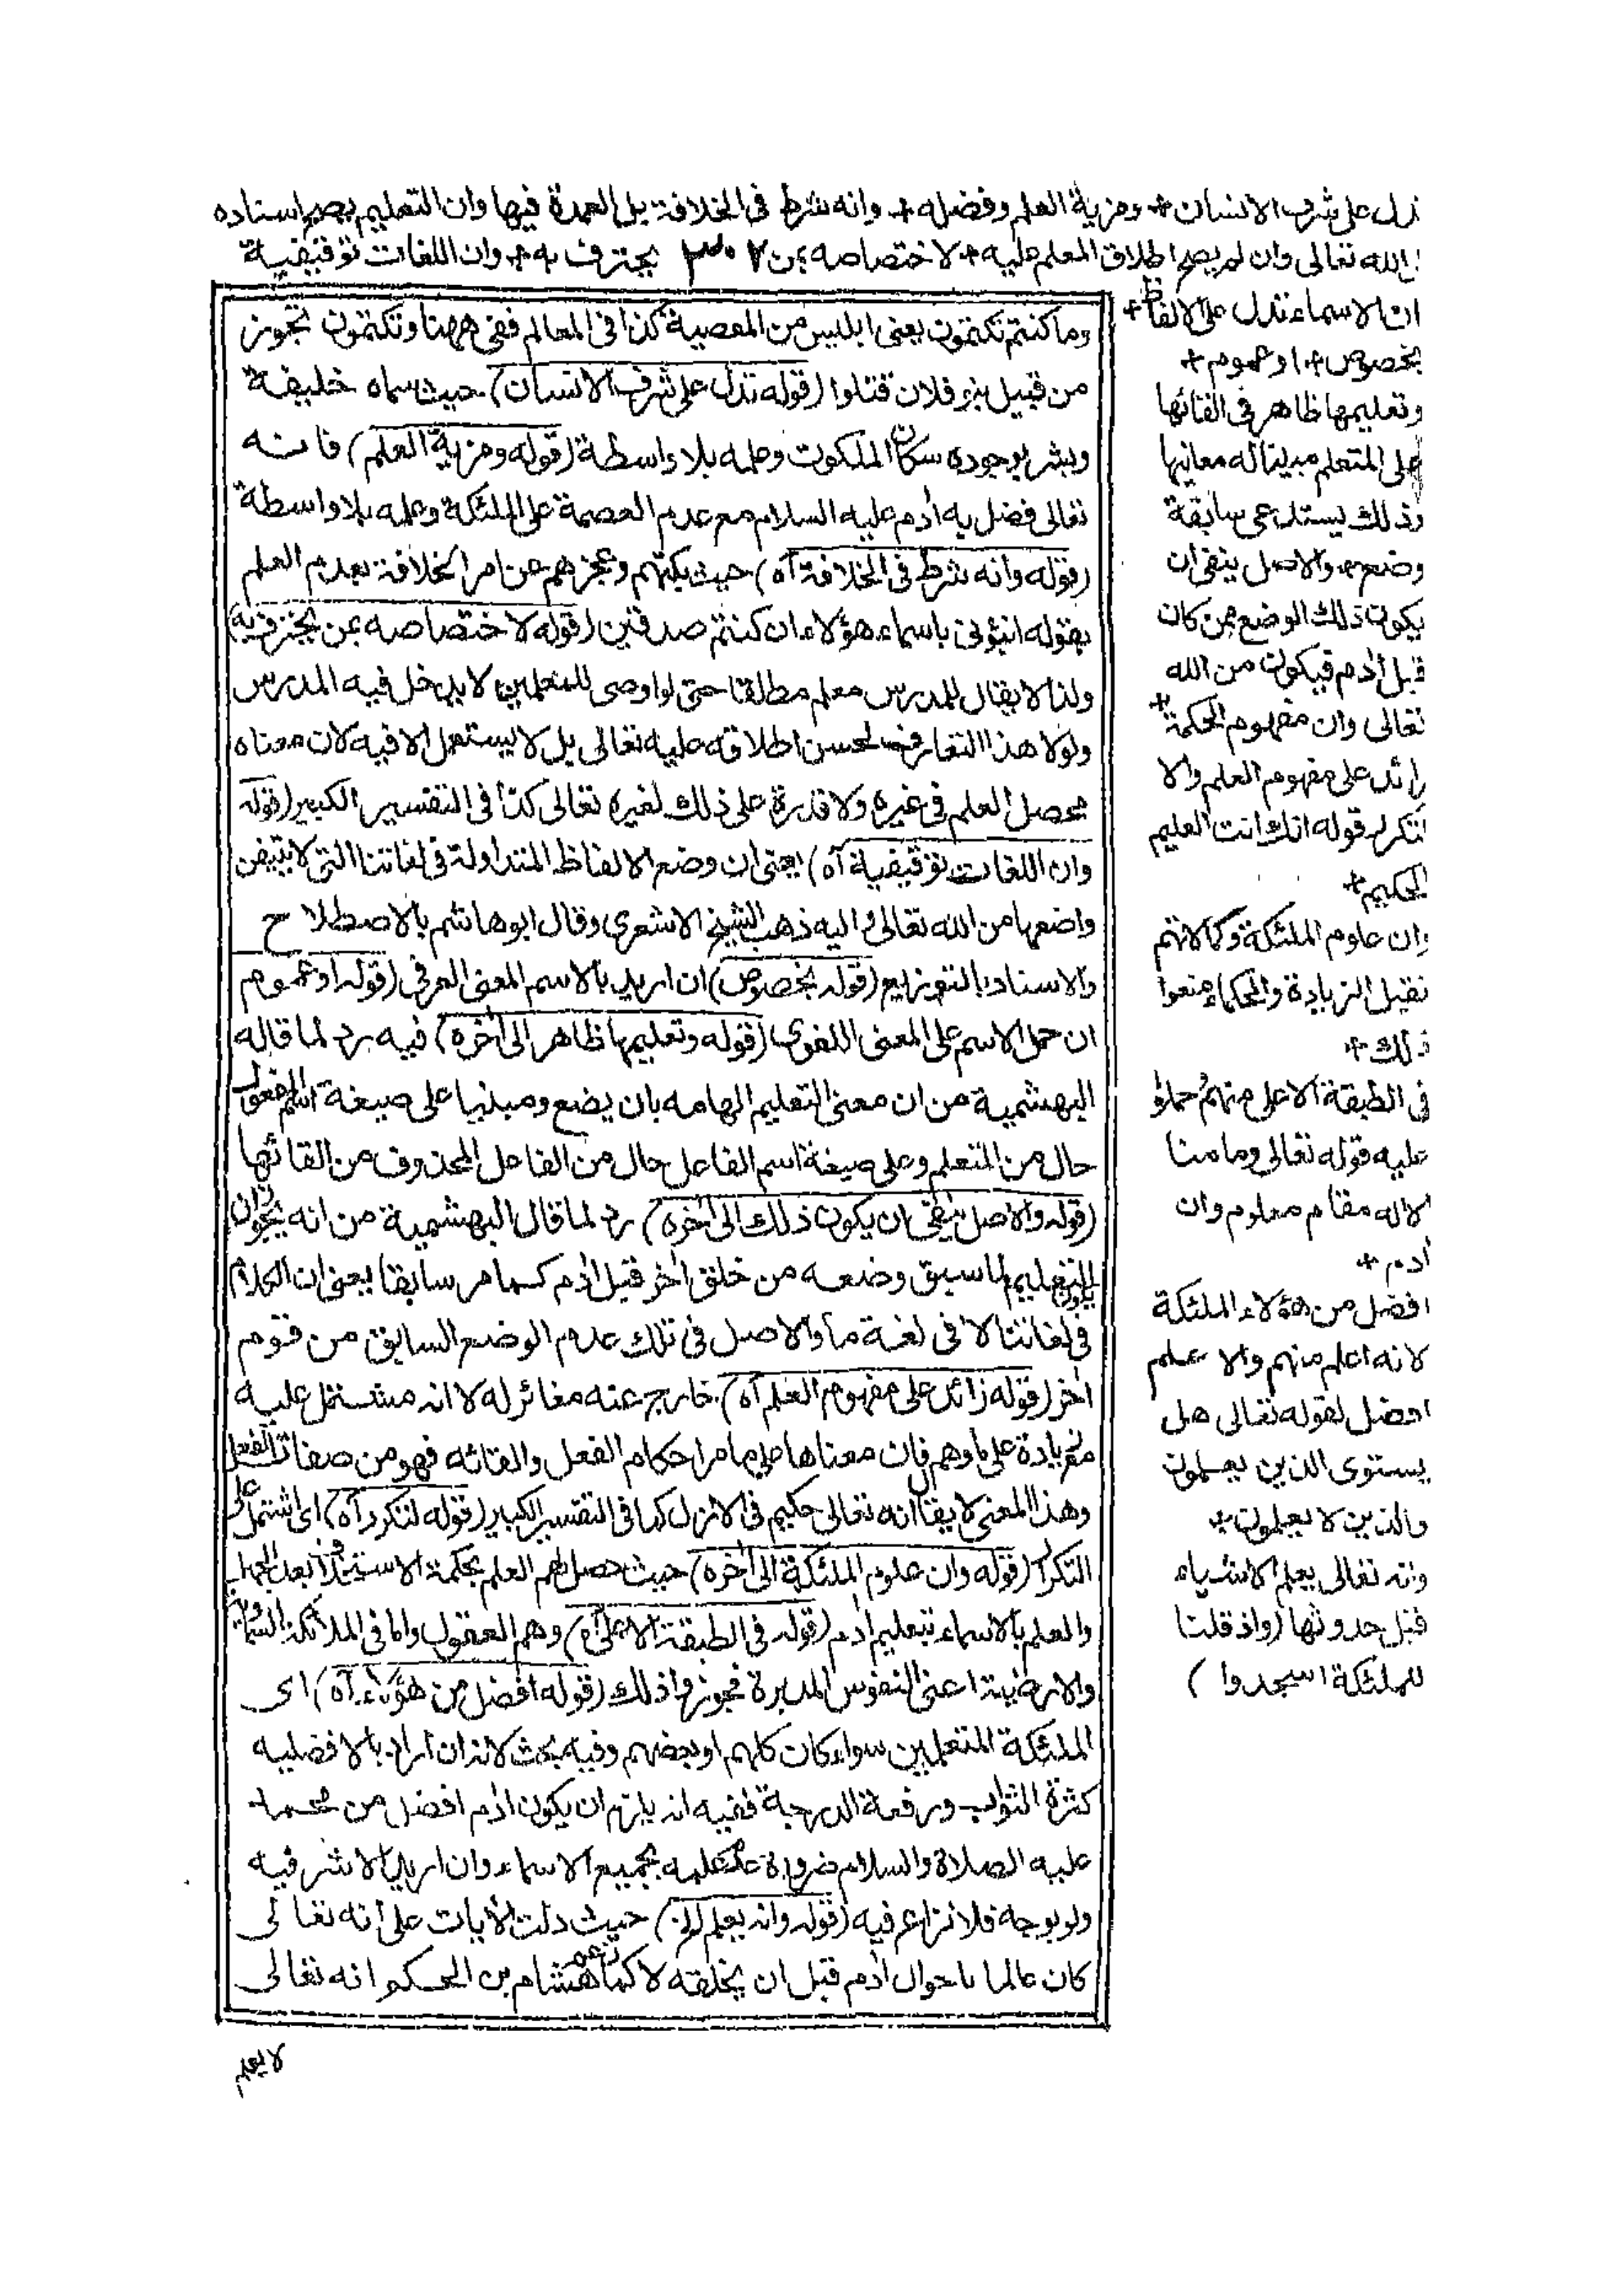 تدل على شرف الانسان + ومزية العلم وفضله + وانه شرط فى الخلافة بل العمدة فيها وان التعليم يصح اسناده
الى الله تعالى وان لم يصح اطلاق المعلم عليه + لاختصاصه بمن ٣٠٧ يحترف به + وان اللغات توقيفية
ان الاسماء تدل على الالفاظ +
بخصوص + او عموم +
وتعليمها ظاهر فى القائها
على المتعلم مبينا له معانيها
وذلك يستدعى سابقة
وضع + والاصل ينفى ان
يكون ذلك الوضع ممن كان
قبل أدم فيكون من الله
تعالى وان مفهوم الحكمة +
زائد على مفهوم العلم والا
لتكرر قوله انك انت العليم
الحكيم +
وان علوم الملئكة وكمالاتهم
تقبل الزيادة والحكماء منعوا
ذلك +
فى الطبقة الاعلى منهم حملوا
عليه قوله تعالى وما منا
الا له مقام معلوم وان
أدم +
افضل من هؤلاء الملئكة
لانه اعلم منهم والا علم
افضل لقوله تعالى هل
يستوى الذين يعلمون
والذين لا يعلمون +
وانه تعالى يعلم الاشياء
قبل حدوثها (واذ قلنا
للملئكة اسجدوا )
وما كنتم تكتمون يعنى ابليس من المعصية كذا فى المعالم ففى ههنا وتكتمون تجوز
من قبيل بنو فلان قتلوا (قوله تدل على شرف الانسان) حيث سماه خليفة
وبشر بوجوده سكان الملكوت وعلمه بلا واسطة (قوله ومزية العلم) فانه
تعالى فضل به أدم عليه السلام مع عدم العصمة على الملئكة وعلمه بلا واسطة
(قوله وانه شرط فى الخلافة آه) حيث بكتهم وعجزهم عن امر الخلافة بعدم العلم
بقوله انبؤنى باسماء هؤلاء ان كنتم صدقين (قوله لاختصاصه بمن يحترف به)
ولذا لا يقال للمدرس معلم مطلقا حتى لو اوصى للمعلمين لا يدخل فيه المدرس
ولولا هذا التعارف لحسن اطلاقه عليه تعالى بل لا يستعمل الا فيه لان معناه
محصل العلم فى غيره ولا قدرة على ذلك لغيره تعالى كذا فى التفسير الكبير (قوله
وان اللغات توقيفية آه) يعنى ان وضع الالفاظ المتداولة فى لغاتنا التى لا يتيقن
واضعها من الله تعالى واليه ذهب الشيخ الاشعرى وقال ابو هاشم بالاصطلاح
والاستاد بالتوزيع (قوله بخصوص) ان اريد بالاسم المعنى العرفى (قوله او عموم
ان حمل الاسم على المعنى اللغوى (قوله وتعليمها ظاهر الى أخره) فيه رد لما قاله
البهشمية من ان معنى التعليم الهامه بان يضع ومبنيا على صيغة اسم المفعول
حال من المتعلم وعلى صيغة اسم الفاعل حال من الفاعل المحذوف من القائها
(قوله والاصل ينفى ان يكون ذلك الى أخره) رد لما قال البهشمية من انه يجوز ان
يكون التعليم لما سبق وضعه من خلق أخر قبل أدم كما مر سابقا يعنى ان الكلام
فى لغاتنا لا فى لغة ما والاصل فى تلك عدم الوضع السابق من قوم
أخر (قوله زائد على مفهوم العلم آه) خارج عنه مغائر له لا انه مشتمل عليه
مع زيادة على ما وهم فان معناها على ما مر احكام الفعل واتقانه فهو من صفات الفعل
وهذا المعنى لا يقا انه تعالى حكيم فى الازل كذا فى التفسير الكبير (قوله لتكرر آه) اى اشتمل على
التكرار (قوله وان علوم الملئكة الى أخره) حيث حصل لهم العلم بحكمة الاستخلاف بعد الجهل
والعلم بالاسماء بتعليم أدم (قوله فى الطبقة الاعلى آه) وهم العقول واما فى الملائكة السماوية
والارضية اعنى النفوس المدبرة فجوزوا ذلك (قوله افضل من هؤلاء آه) اى
الملئكة المتعلمين سواء كان كلهم او بعضهم وفيه بحث لانه ان اراد بالافضلية
كثرة الثواب ورفعة الدرجة ففيه انه يلزم ان يكون أدم افضل من محمد
عليه الصلاة والسلام ضرورة عدم علمه بجميع الاسماء وان اريد الاشرفية
ولو بوجه فلا نزاع فيه (قوله وانه يعلم الخ) حيث دلت الأيات على انه تعالى
كان عالما باحوال أدم قبل ان يخلقه لا كما زعم هشام بن الحكم انه تعالى
لا يعلم